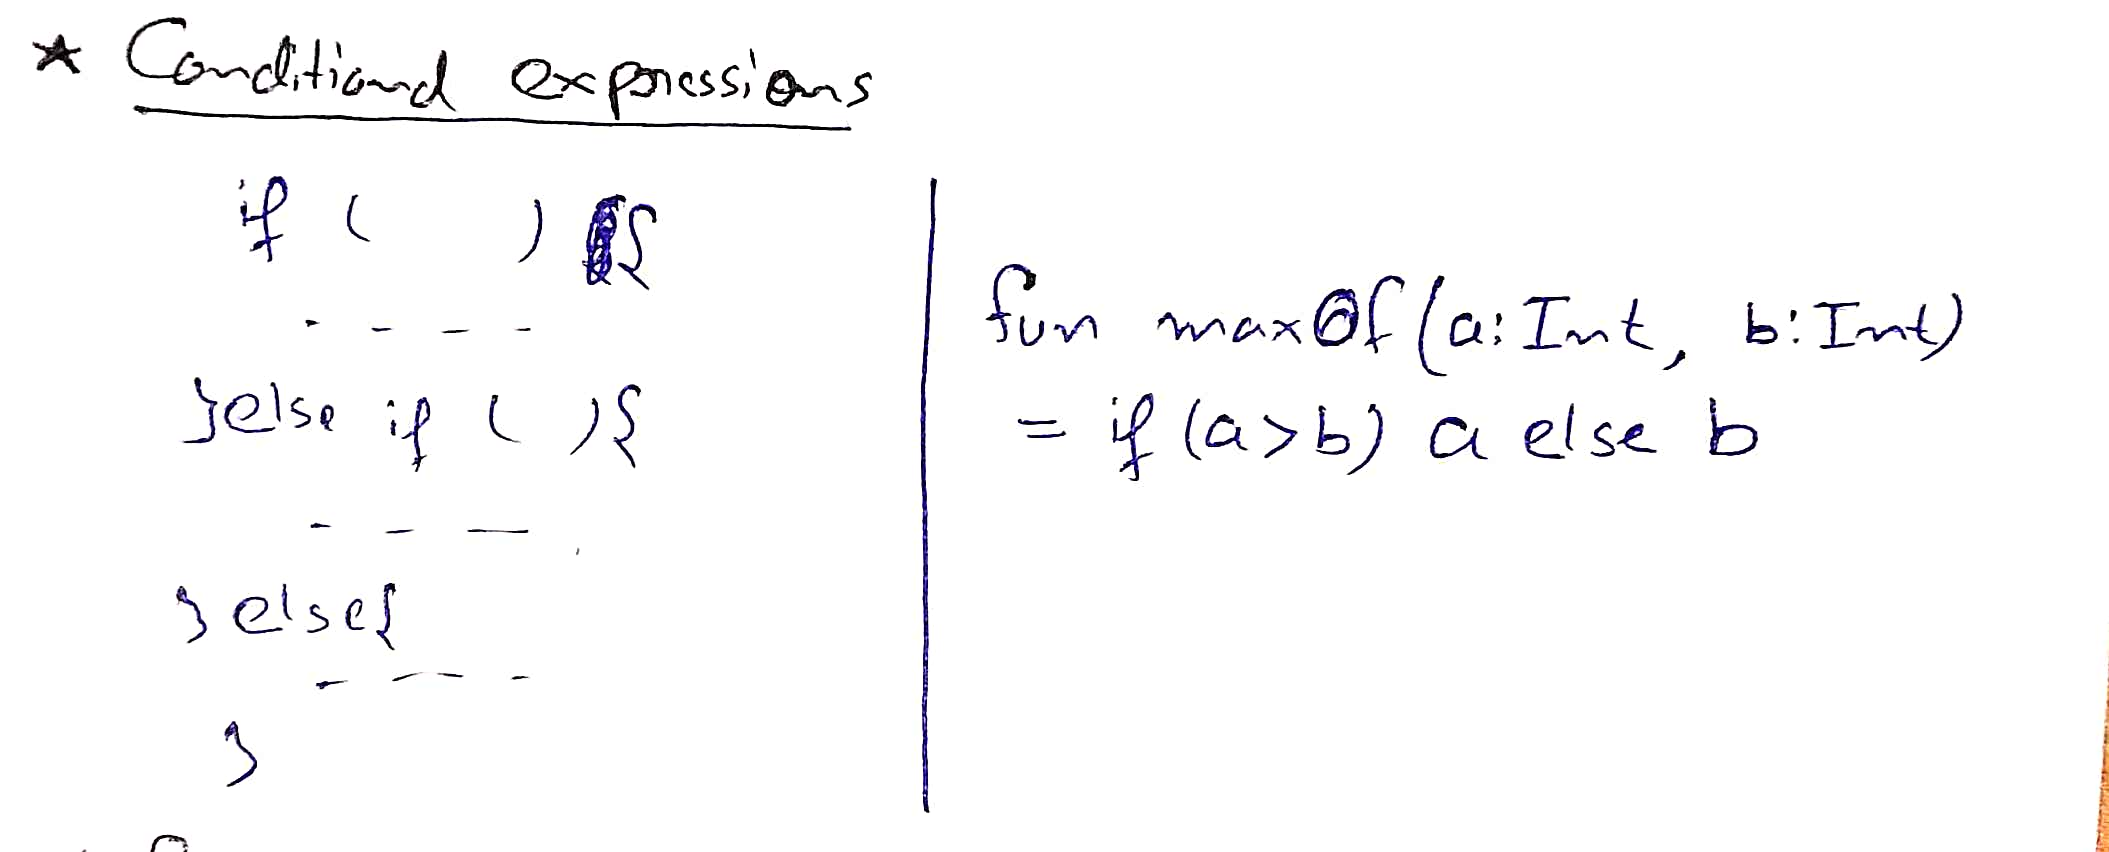 * Conditional expressions
if ( ) {
- - - -
}else if ( ){
- - -
} else{
- - -
}
fun maxOf(a: Int, b: Int)
= if (a>b) a else b